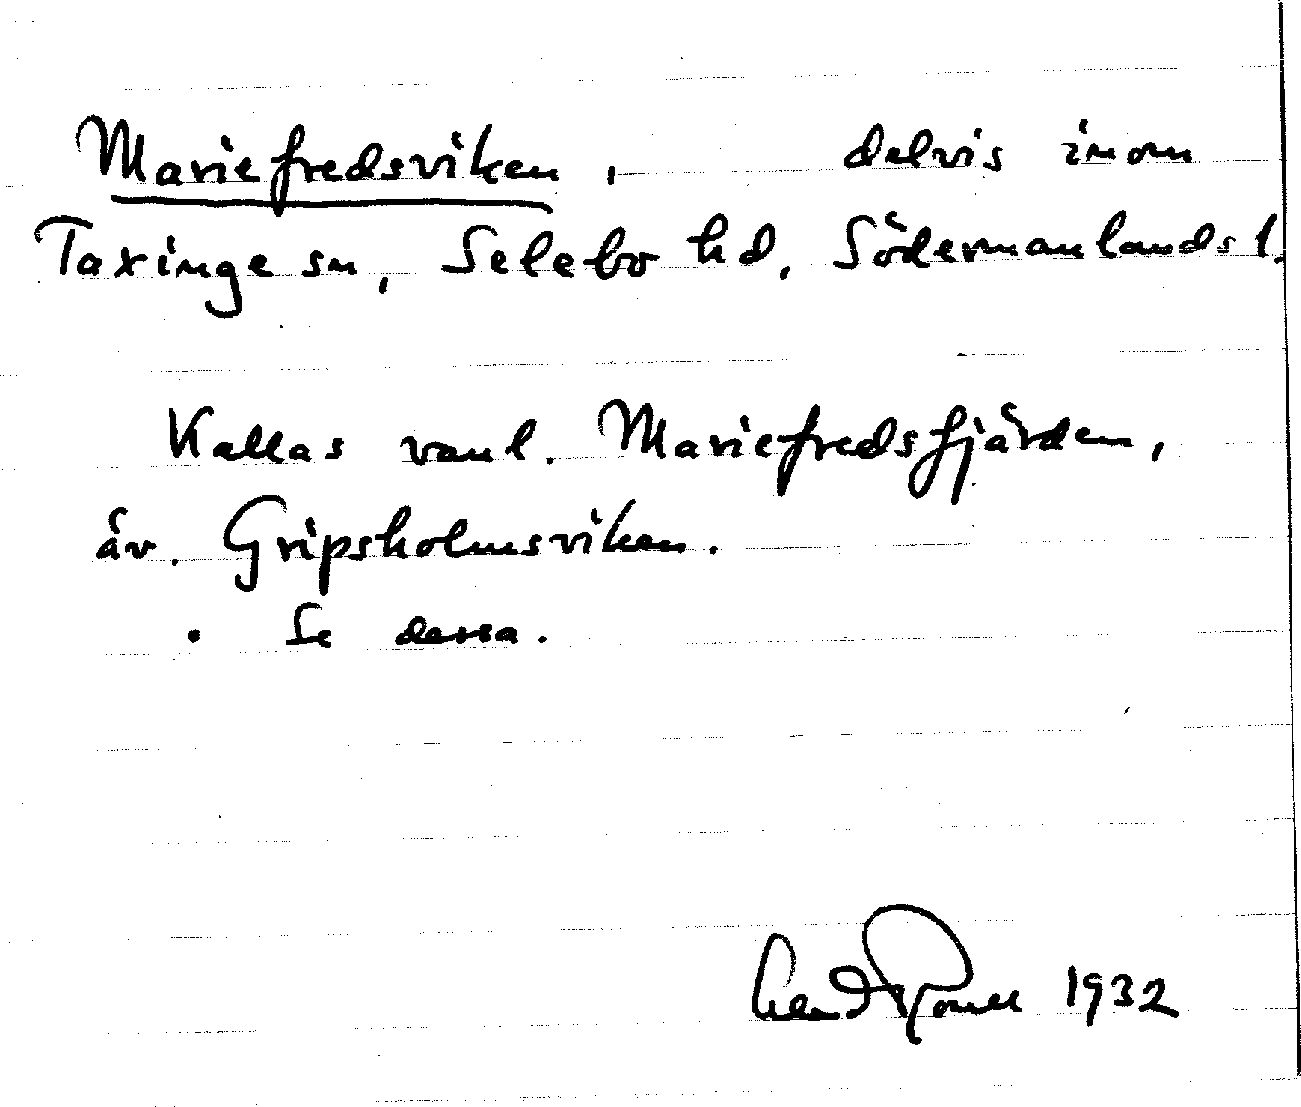 Mariefredsviken, delvis inom
Taxinge sn, Selebo hd, Södermanlands l.
Kallas vanl. Mariefredsfjärden,
äv. Gripsholmsviken.
. Se dessa.
1932